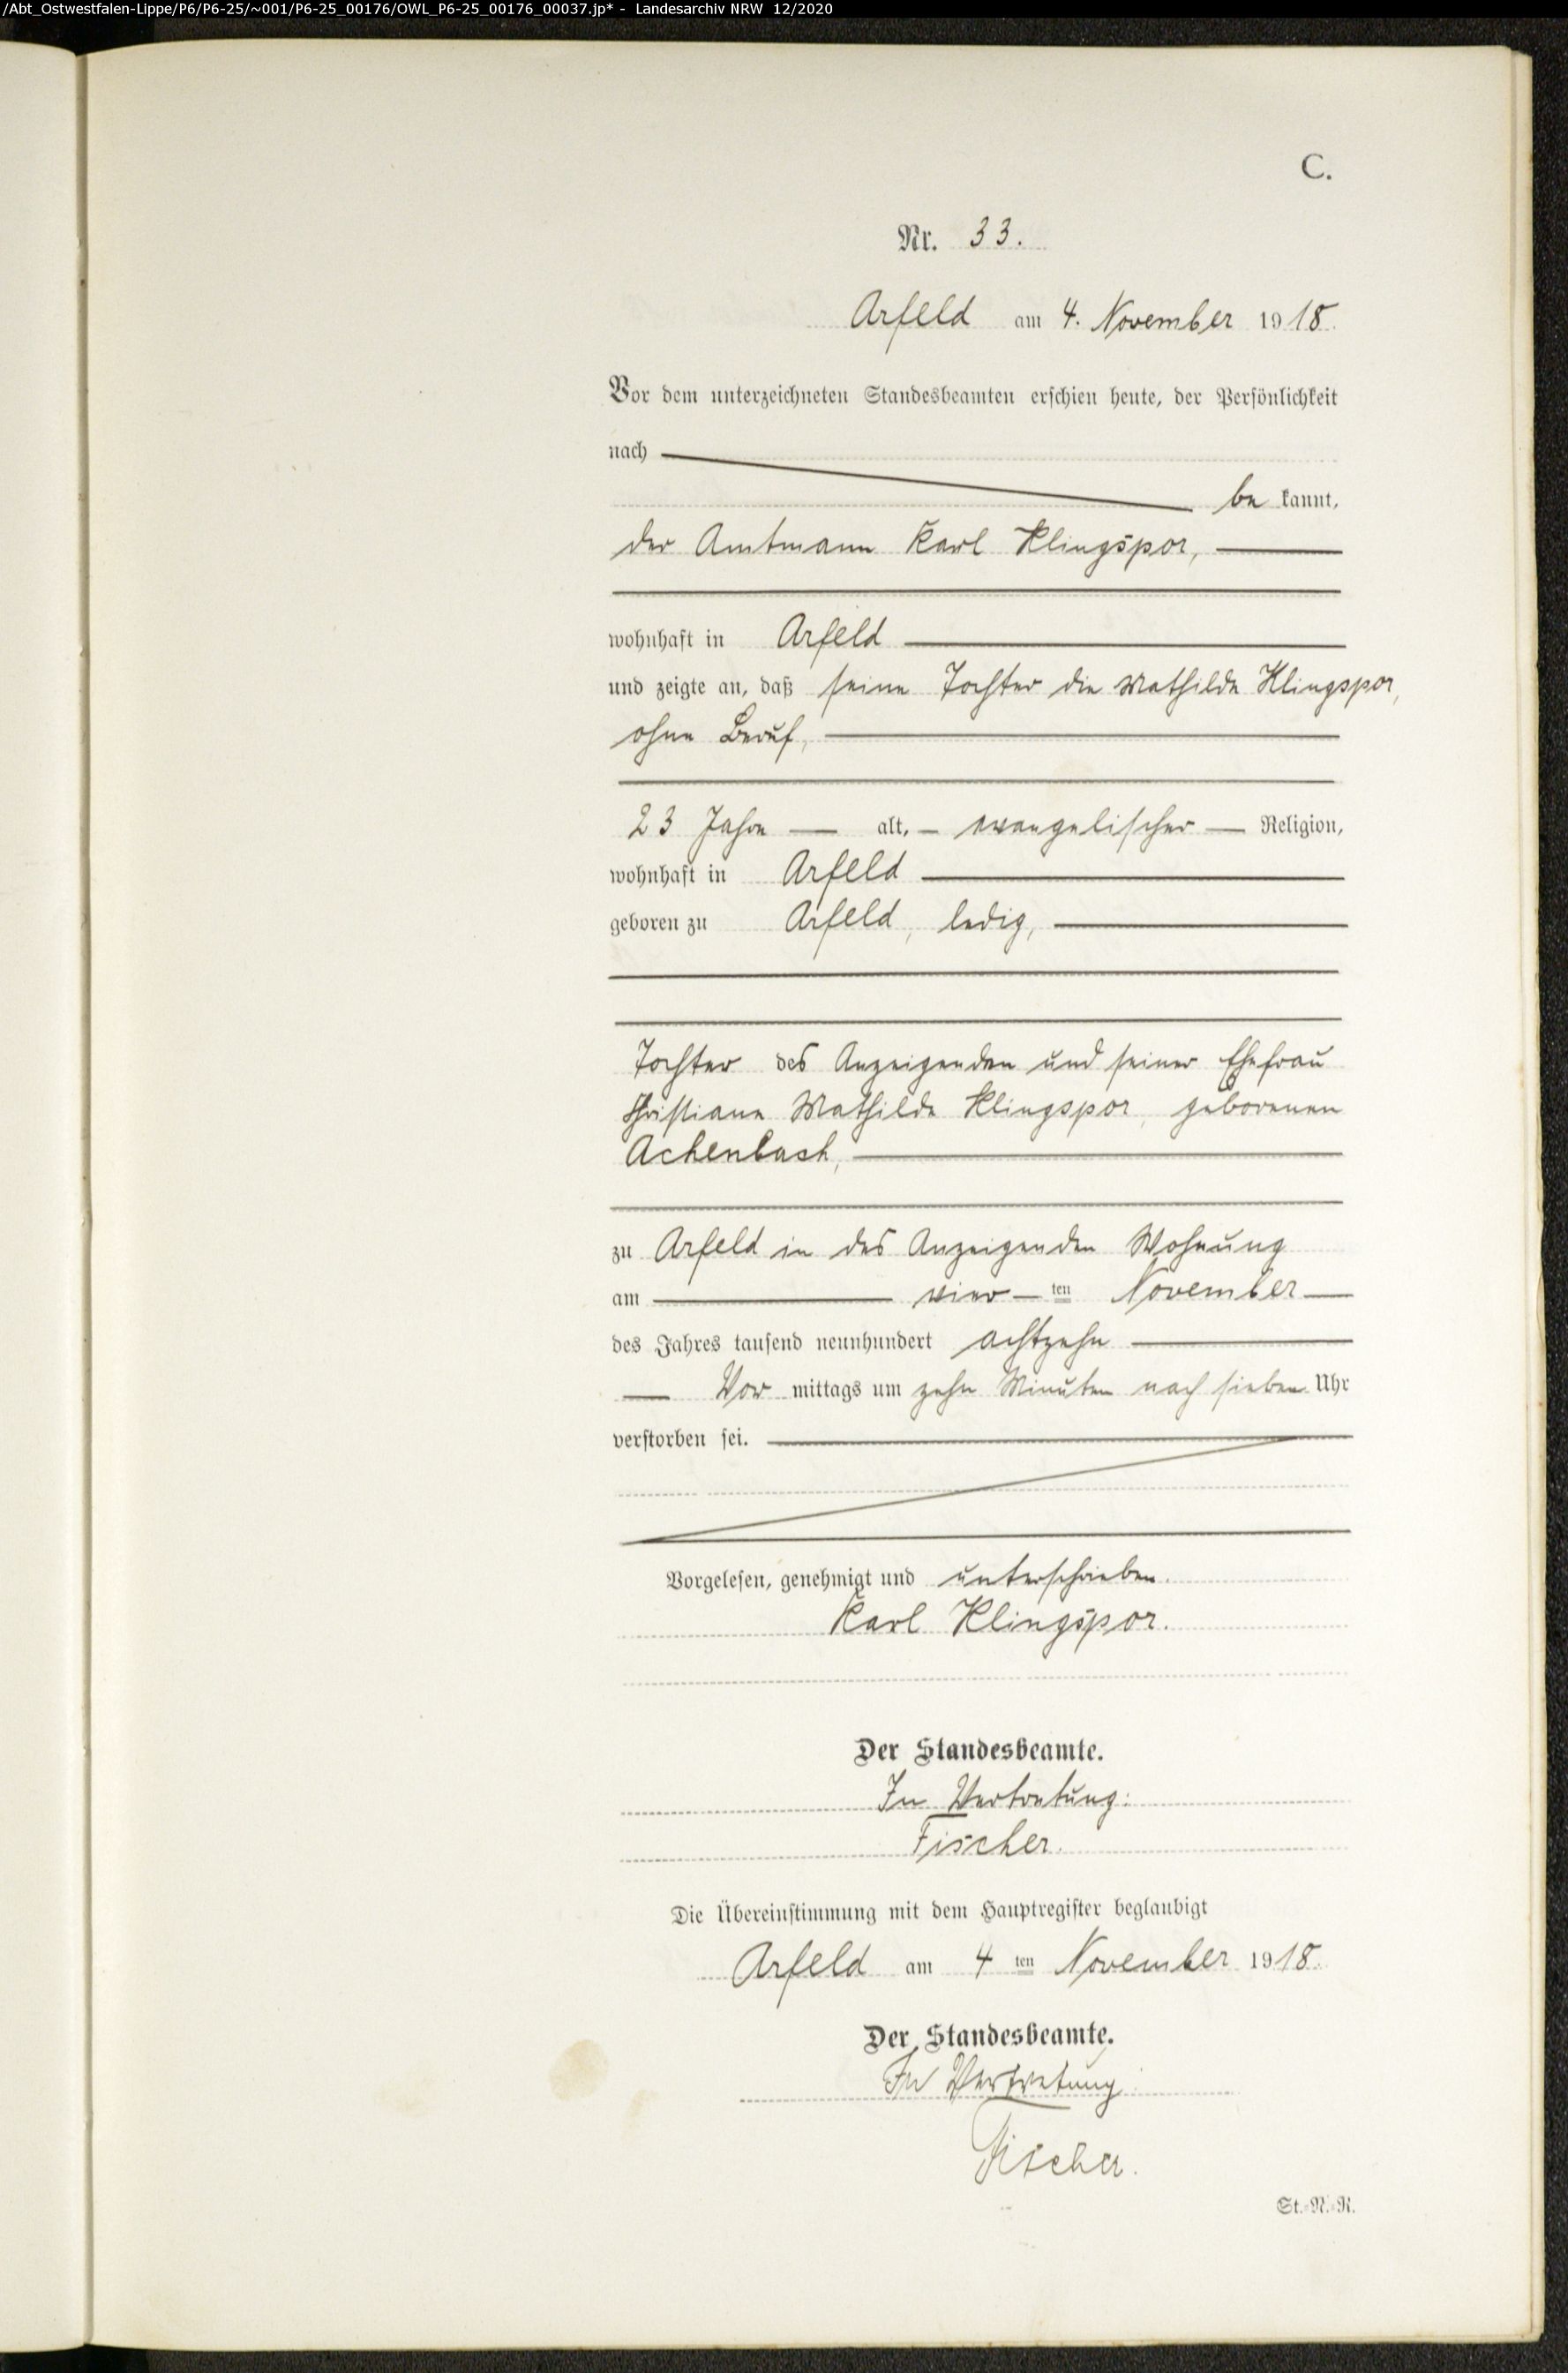 /Abt_Ostwestfalen-Lippe/P6/P6-25/~001/P6-25_00176/OWL_P6-25_00176_00037.jp* - Landesarchiv NRW 12/2020
C.
Nr. 33.
Arfeld am 4. November 1918.
Vor dem unterzeichneten Standesbeamten erschien heute, der Persönlichkeit
nach
be kannt,
der Amtmann Karl Klingspor,
wohnhaft in Arfeld
und zeigte an, daß seine Tochter die Mathilde Klingspor,
ohne Beruf,
23 Jahre — alt, — evangelischer — Religion,
wohnhaft in Arfeld
geboren zu Arfeld, ledig,
Tochter des Anzeigenden und seiner Ehefrau
Christiane Mathilde Klingspor, geborenen
Achenbach,
zu Arfeld in des Anzeigenden Wohnung
am — vier — ten November —
des Jahres tausend neunhundert achtzehn
— Vor mittags um zehn Minuten nach sieben Uhr
verstorben sei.
Vorgelesen, genehmigt und unterschrieben.
Karl Klingspor.
Der Standesbeamte.
In Vertretung:
Fischer.
Die Übereinstimmung mit dem Hauptregister beglaubigt
Arfeld am 4 ten November 1918.
Der Standesbeamte.
In Vertretung:
Fischer.
St.-N.-R.